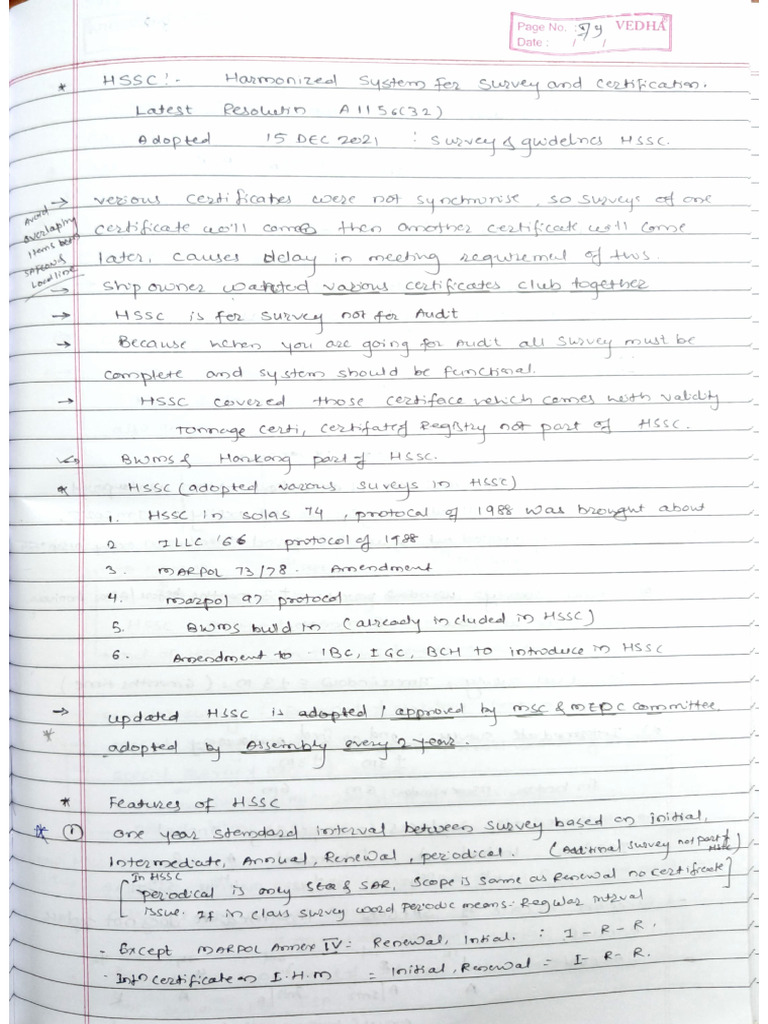 Page No. 74 VEDHA
Date : / /
* HSSC :- Harmonized System for Survey and Certification.
Latest Resolutin A1156(32)
Adopted 15 DEC 2021 : Survey & guidelines HSSC.
→ verious certificates were not synchronise, so surveys of one
Avoid
overlaping
items betn
SAFCON &
Loadline
certificate will come then another certificate will come
later, causes delay in meeting requiremet of this.
→ Ship owner wanted various certificates club together
→ HSSC is for survey not for Audit
→ Because when you are going for Audit all survey must be
complete and system should be functional.
→ HSSC covered those certiface which comes with validity
Tonnage certi, certifate of Registry not part of HSSC.
BWMS & Honkong part of HSSC.
* HSSC (adopted varous suveys in HSSC)
1. HSSC in solas 74, protocal of 1988 was brought about
2 ILLC '66 protocol of 1988
3. MARPOL 73/78. Amendment
4. Marpol 97 protocol
5. BWMS build in (already included in HSSC)
6. Amendment to IBC, IGC, BCH to introduce in HSSC
→ updated HSSC is adopted / approved by MSC & MEPC committee,
* adopted by Assembly every 2 year.
* Features of HSSC
* ① one year standard interval between survey based on initial,
Intermediate, Annual, Renewal, periodical. (Additional survey not part of HSSC)
[In HSSC
periodical is only SEQ & SAR, Scope is same as Renewal no certificate
issue. If in class survey word periodic means: Regular intrval]
- Except MARPOL Annex IV = Renewal, Intial. : I - R - R.
- Int certificate on I.H.M = Initial, Renewal = I - R - R.